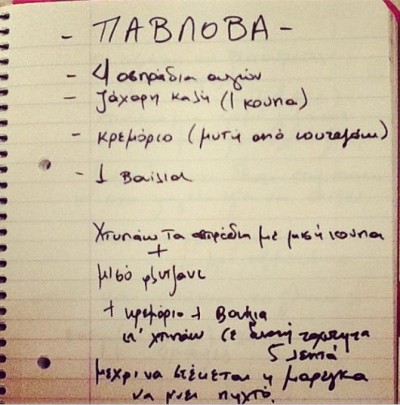 - ΠΑΒΛΟΒΑ -
- 4 ασπράδια αυγών
- ζάχαρη καλή (1 κουπα)
- κρεμόριο (μυτη από κουταλάκι)
- 1 Βανιλια
Χτυπάω τα ασπράδια με μισή κουπα
+
μισό φλυτζανι
+ κρεμόριο + Βανιλια
κ' χτυπάω σε δυνατή ταχυτητα
5 λεπτά
μεχρι να στέκεται η μαρεγκα
να γινει πηχτό.